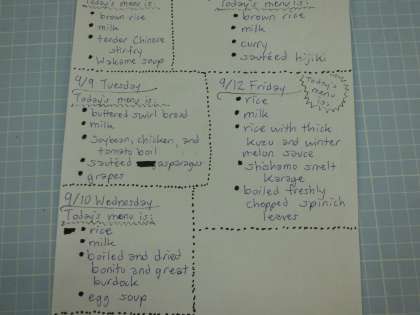 Today's menu is:
brown rice
milk
tender Chinese
stirfry
Wakame soup
9/9 Tuesday
Today's menu is:
buttered swirl bread
milk
Soybean, chicken, and
tomato boil
sautéed asparagus
grapes
9/10 Wednesday
Today's menu is:
rice
milk
boiled and dried
bonito and great
burdock
egg soup
Today's menu is:
brown rice
milk
curry
sautéed hijiki
9/12 Friday
Today's
menu
is:
rice
milk
rice with thick
kuzu and winter
melon sauce
Shishamo smelt
karage
boiled freshly
chopped spinich
leaves